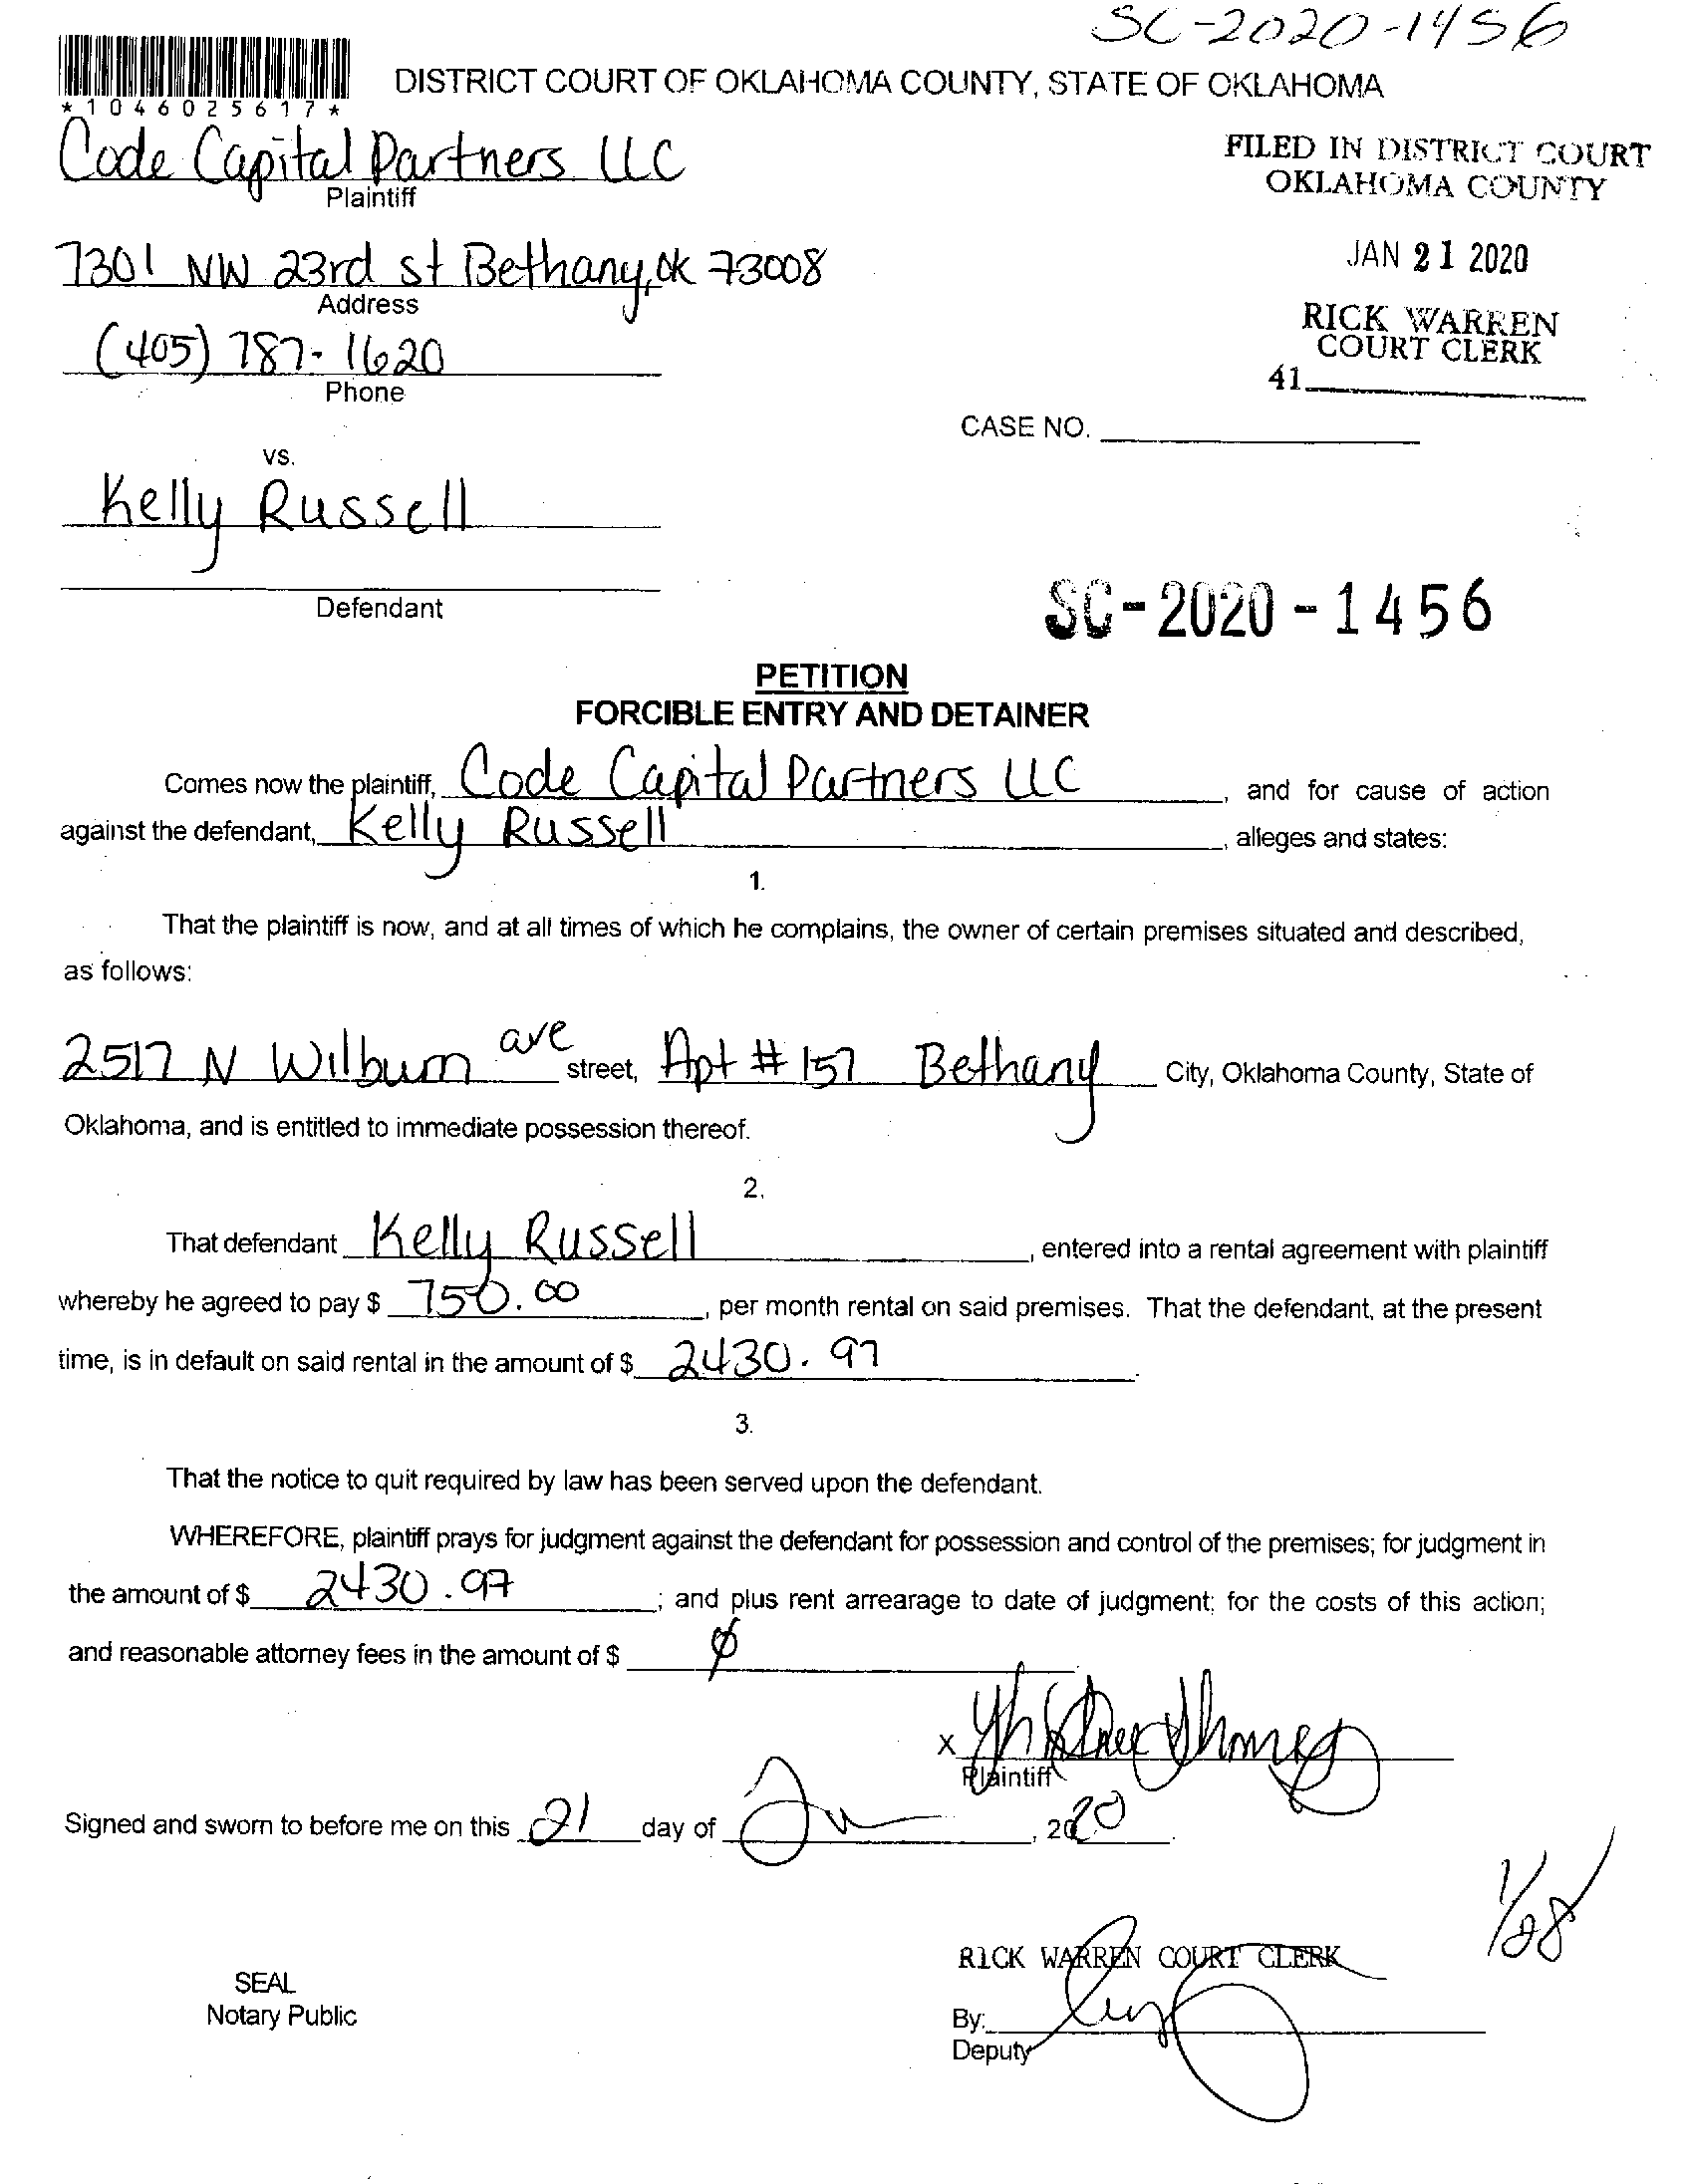 SC-2020-1456
*1046025617*
DISTRICT COURT OF OKLAHOMA COUNTY, STATE OF OKLAHOMA
Code Capital Partners LLC
Plaintiff
FILED IN DISTRICT COURT
OKLAHOMA COUNTY
7301 NW 23rd st Bethany, OK 73008
Address
JAN 21 2020
(405) 787-1620
Phone
RICK WARREN
COURT CLERK
41
CASE NO.
vs.
Kelly Russell
Defendant
SC-2020-1456
PETITION
FORCIBLE ENTRY AND DETAINER
Comes now the plaintiff, Code Capital Partners LLC, and for cause of action
against the defendant, Kelly Russell, alleges and states:
1.
That the plaintiff is now, and at all times of which he complains, the owner of certain premises situated and described,
as follows:
2517 N Wilburn ave street, Apt # 157 Bethany City, Oklahoma County, State of
Oklahoma, and is entitled to immediate possession thereof.
2.
That defendant Kelly Russell, entered into a rental agreement with plaintiff
whereby he agreed to pay $ 750.00, per month rental on said premises. That the defendant, at the present
time, is in default on said rental in the amount of $ 2430.97.
3.
That the notice to quit required by law has been served upon the defendant.
WHEREFORE, plaintiff prays for judgment against the defendant for possession and control of the premises; for judgment in
the amount of $ 2430.97; and plus rent arrearage to date of judgment; for the costs of this action;
and reasonable attorney fees in the amount of $ ∅
X
Plaintiff
Signed and sworn to before me on this 21 day of Jan, 2020
1/28
RICK WARREN COURT CLERK
SEAL
Notary Public
By:
Deputy